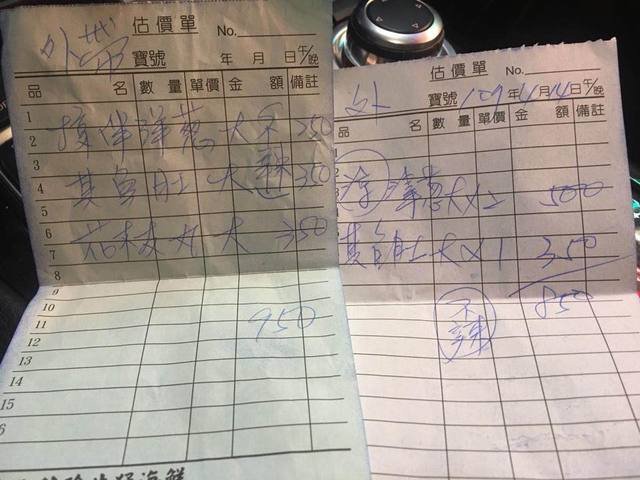 外帶
估價單 No.
寶號 年 月 日午/晚
品名 數量 單價 金額 備註
1
2 伴洋蔥 大 不辣 250
3
4 魚肚 大 350
5
6 花枝丸 大 350
7
8
9
10
11 950
12
13
14
15
6
海鮮
估價單 No.
外 寶號 109年4月14日午/晚
品名 數量 單價 金額 備註
洋蔥大x2 500
魚肚大x1 350
850
不辣